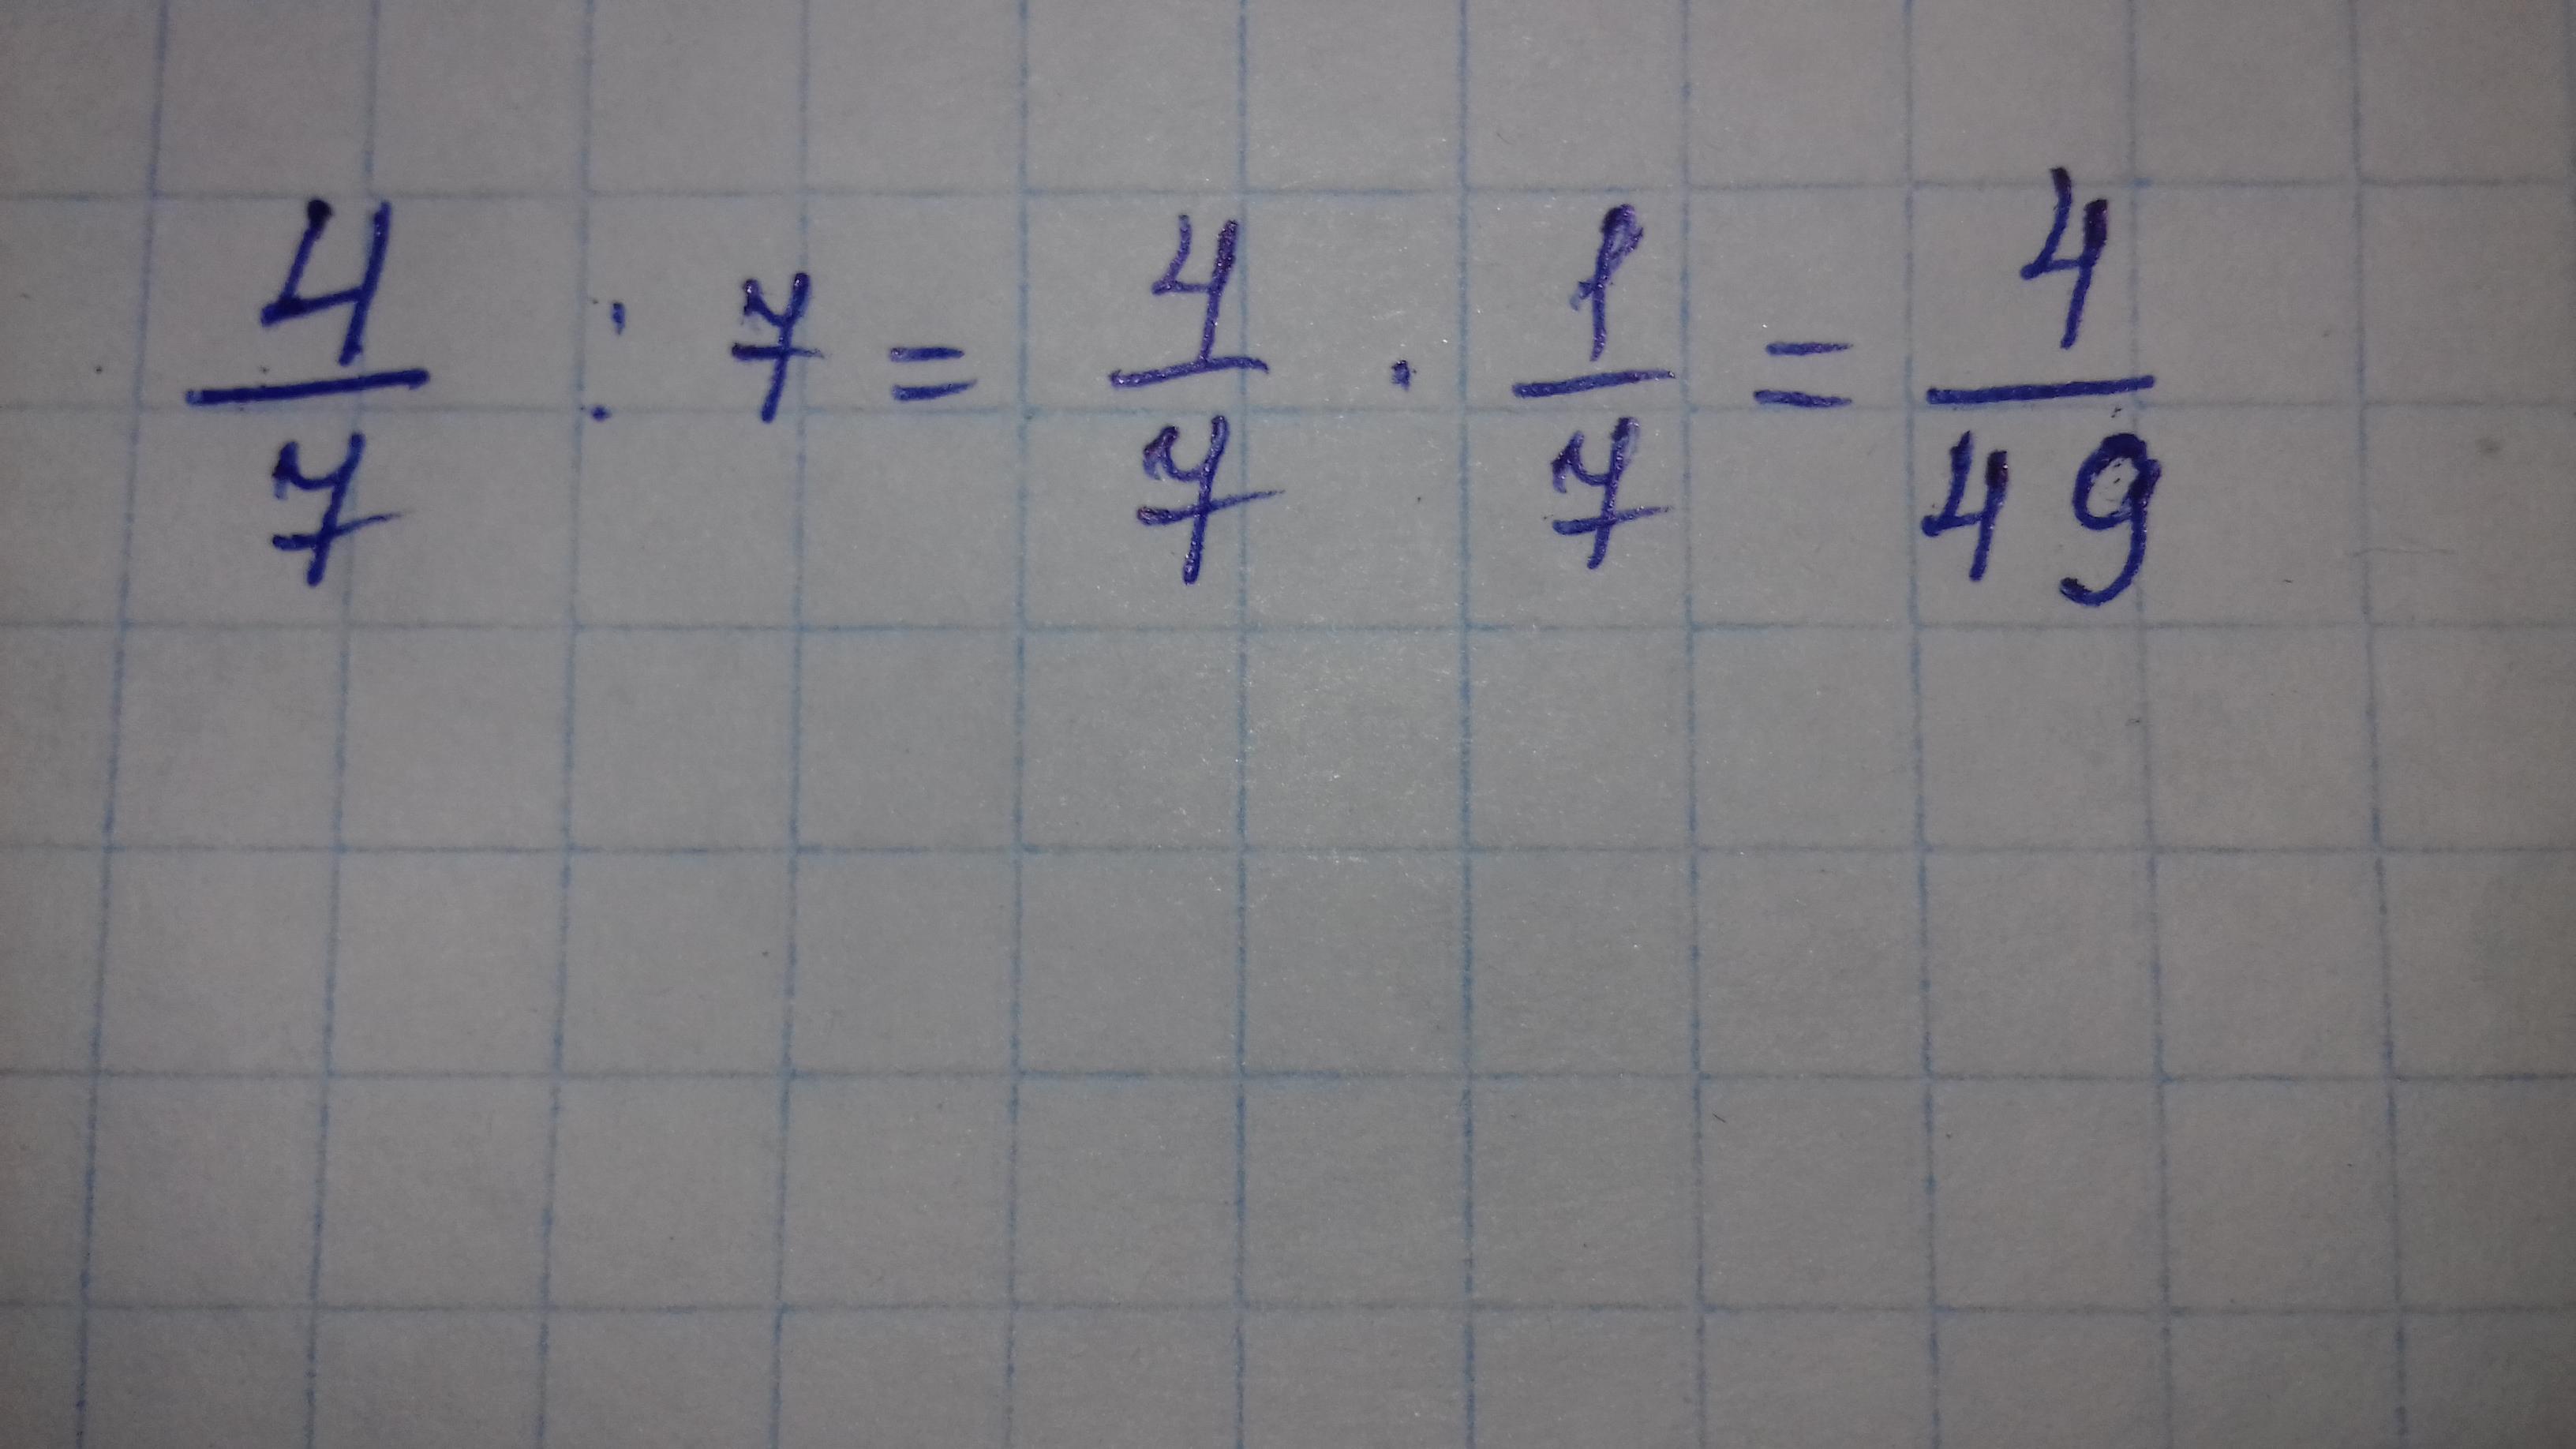 4/7 : 7 = 4/7 · 1/7 = 4/49